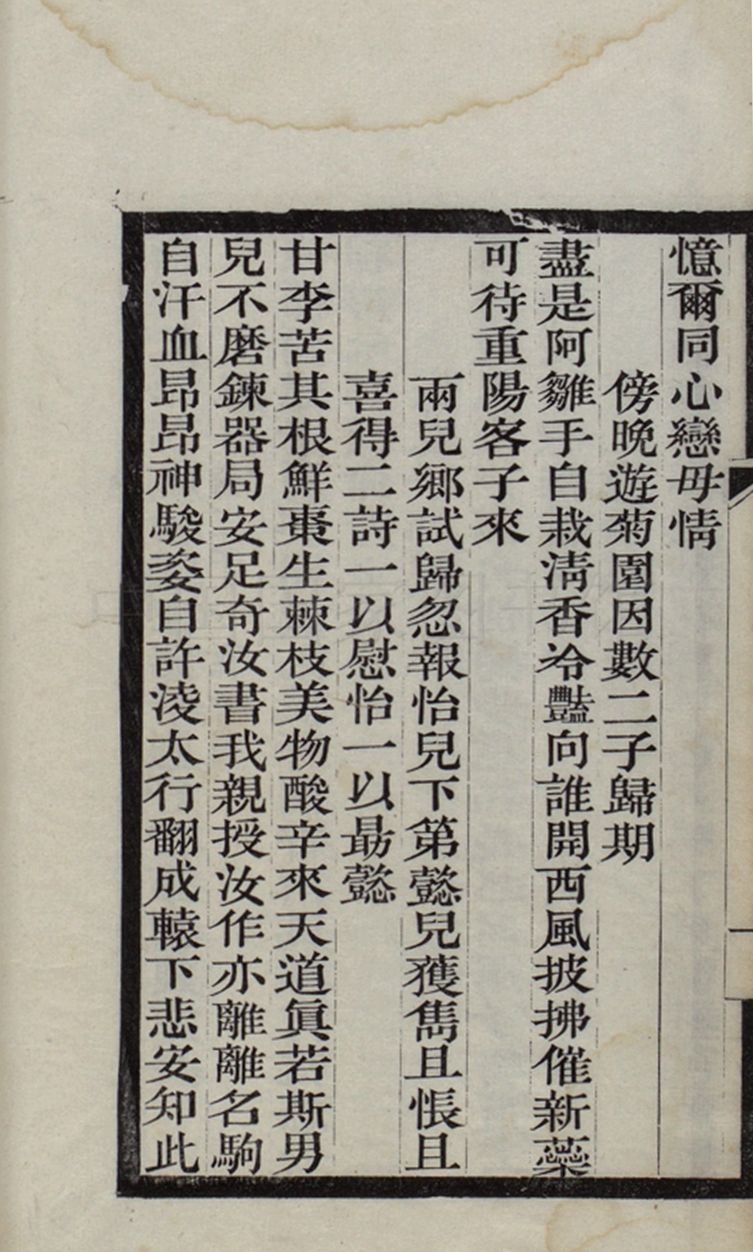 憶爾同心戀母情
傍晚遊菊圃因數二子歸期
盡是阿雛手自栽淸香冷豔向誰開西風披拂催新蘂
可待重陽客子來
兩兒鄉試歸忽報怡兒下第懿兒獲雋且悵且
喜得二詩一以慰怡一以勗懿
甘李苦其根鮮棗生棘枝美物酸辛來天道眞若斯男
兒不磨鍊器局安足奇汝書我親授汝作亦離離名駒
自汗血昂昂神駿姿自許淩太行翻成轅下悲安知此